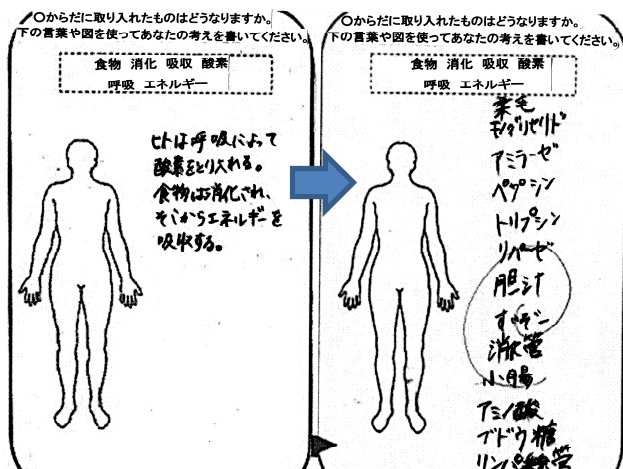 ○からだに取り入れたものはどうなりますか。
下の言葉や図を使ってあなたの考えを書いてください。
食物 消化 吸収 酸素
呼吸 エネルギー
ヒトは呼吸によって
酸素をとり入れる。
食物は消化され、
そこからエネルギーを
吸収する。
○からだに取り入れたものはどうなりますか。
下の言葉や図を使ってあなたの考えを書いてください。
食物 消化 吸収 酸素
呼吸 エネルギー
柔毛
モノグリセリド
アミラーゼ
ペプシン
トリプシン
リパーゼ
胆汁
消化管
小腸
アミノ酸
ブドウ糖
リンパ管